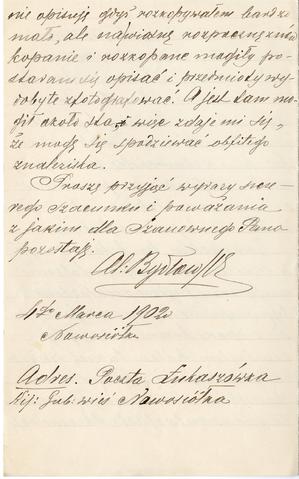 nie opisuję gdyż rozkopywałem bardzo
mało, ale na wiosnę rozpocznę znów
kopanie i rozkopane mogiły po-
staram się opisać i przedmioty wy-
dobyte zfotografować. A jest tam mo-
gił około sta, więc zdaje mi się,
że mogę się spodziewać obfitego
znaleziska.
Proszę przyjąć wyrazy szcze-
rego szacunku i poważania
z jakim dla Szanownego Pana
pozostaję.
Ad: Bydłowski
4go Marca 1902
Nowosiółka
Adres. Poczta Łukaszówka
Kij: Gub: wieś Nowosiółka